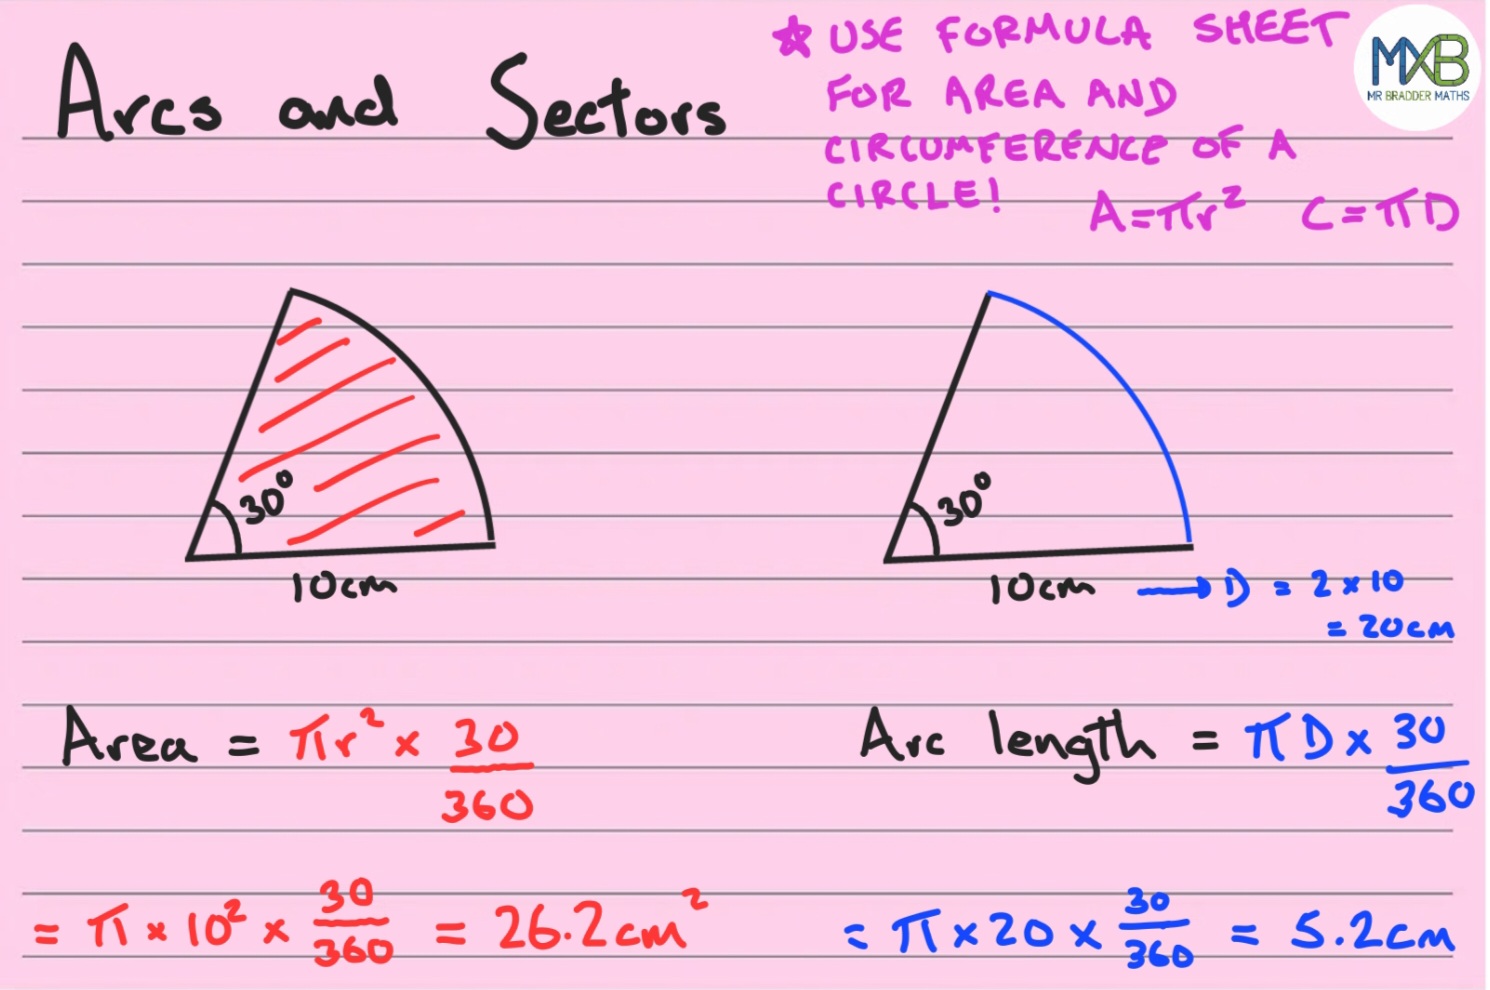 Arcs and Sectors
☆ USE FORMULA SHEET
FOR AREA AND
CIRCUMFERENCE OF A
CIRCLE! A=πr² C=πD
MXB
MR BRADDER MATHS
30°
10cm
30°
10cm → D = 2 × 10
= 20cm
Area = πr² × 30/360
= π × 10² × 30/360 = 26.2cm²
Arc length = πD × 30/360
= π × 20 × 30/360 = 5.2cm